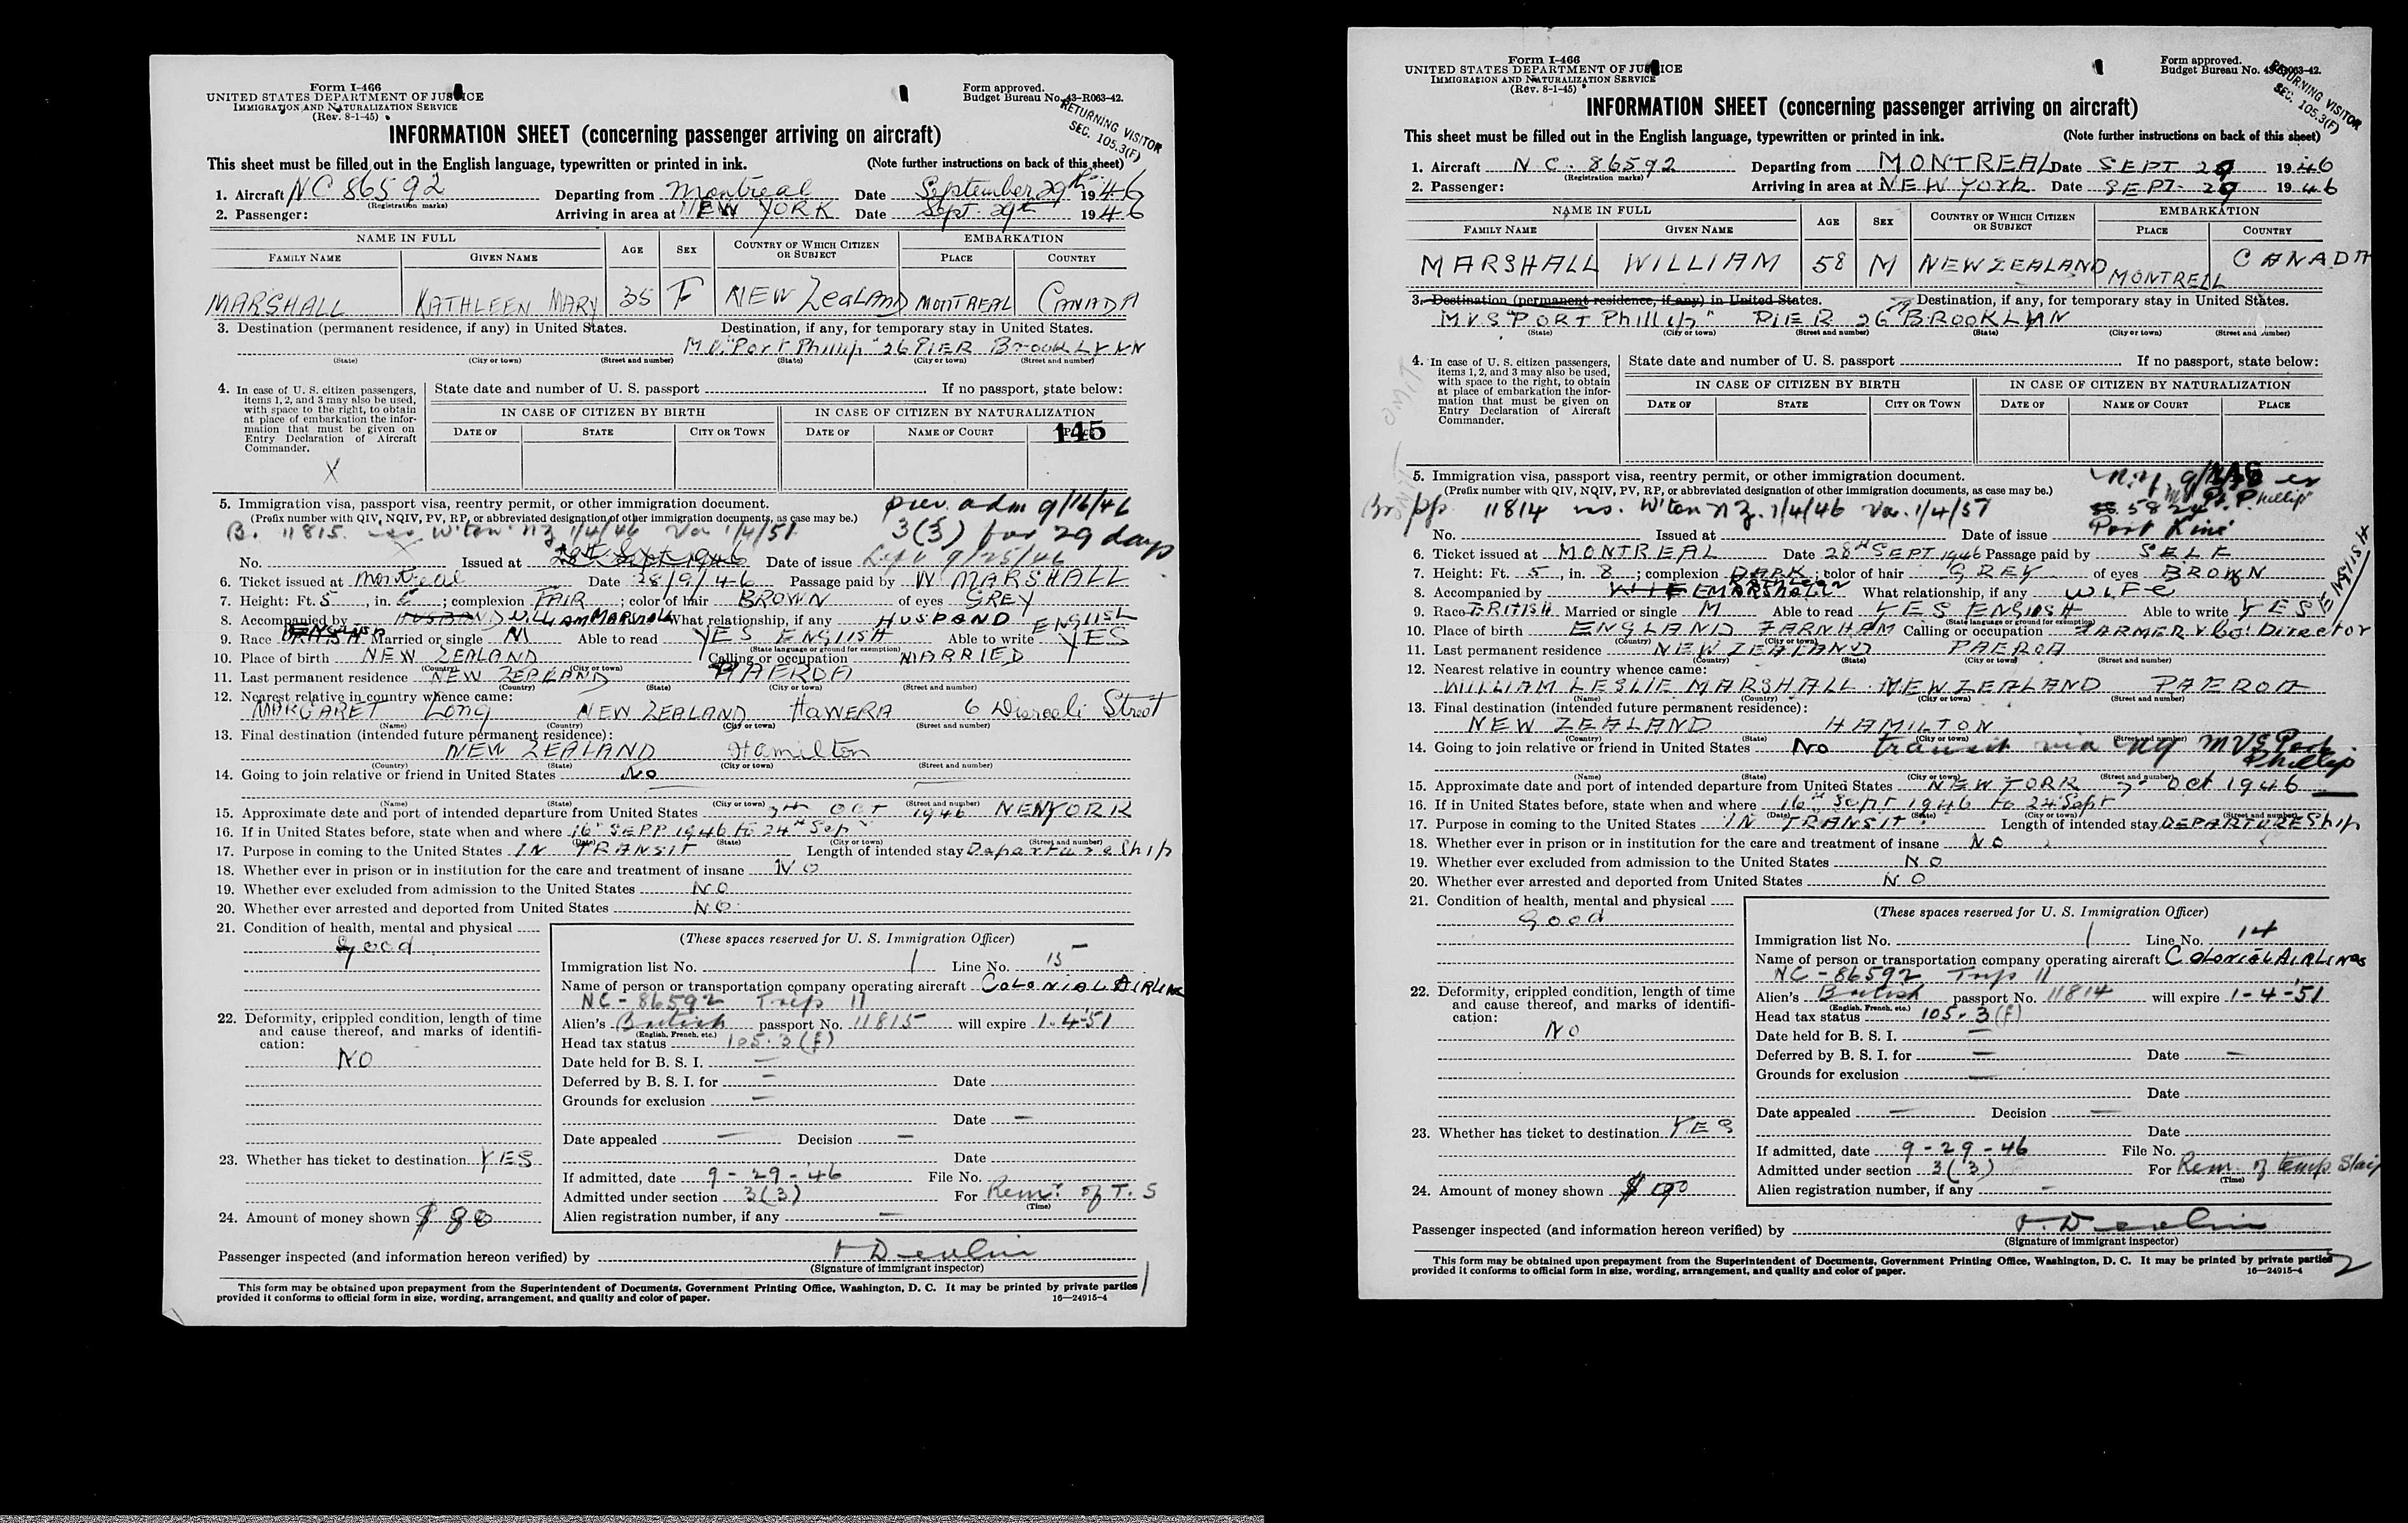 Form I-466
UNITED STATES DEPARTMENT OF JUSTICE
IMMIGRATION AND NATURALIZATION SERVICE
(Rev. 8-1-45)
Form approved.
Budget Bureau No. 43-R063-42.
RETURNING VISITOR
SEC. 105.3(F)
INFORMATION SHEET (concerning passenger arriving on aircraft)
This sheet must be filled out in the English language, typewritten or printed in ink. (Note further instructions on back of this sheet)
1. Aircraft NC 86592 Departing from Montreal Date September 29th 1946
(Registration marks)
2. Passenger: Arriving in area at NEW YORK Date Sept. 29th 1946
NAME IN FULL AGE SEX COUNTRY OF WHICH CITIZEN OR SUBJECT EMBARKATION
FAMILY NAME GIVEN NAME PLACE COUNTRY
MARSHALL KATHLEEN MARY 35 F NEW ZeaLAND MONTREAL CANADA
3. Destination (permanent residence, if any) in United States. Destination, if any, for temporary stay in United States.
M.V. "Port Phillip" 26 PIER BrooKLYN
(State) (City or town) (Street and number) (State) (City or town) (Street and number)
4. In case of U. S. citizen passengers, items 1, 2, and 3 may also be used, with space to the right, to obtain at place of embarkation the information that must be given on Entry Declaration of Aircraft Commander.
X
State date and number of U. S. passport If no passport, state below:
IN CASE OF CITIZEN BY BIRTH IN CASE OF CITIZEN BY NATURALIZATION
DATE OF STATE CITY OR TOWN DATE OF NAME OF COURT PLACE
145
5. Immigration visa, passport visa, reentry permit, or other immigration document. prev. adm 9/16/46
(Prefix number with QIV, NQIV, PV, RP, or abbreviated designation of other immigration documents, as case may be.) 3(3) for 29 days
B. 11815 iss W'ton NZ 1/4/46 Va 1/4/51
No. Issued at 28th Sept 1946 Date of issue Dept 9/25/46
6. Ticket issued at Montreal Date 28/9/46 Passage paid by W MARSHALL
7. Height: Ft. 5, in. 6; complexion FAIR; color of hair BROWN of eyes GREY
8. Accompanied by HUSBAND WILLIAM MARSHALL What relationship, if any HUSBAND
9. Race ENGLISH Married or single M Able to read YES ENGLISH Able to write YES ENGLISH
(State language or ground for exemption)
10. Place of birth NEW ZEALAND Calling or occupation MARRIED
(Country) (City or town)
11. Last permanent residence NEW ZEALAND PAEROA
(Country) (State) (City or town) (Street and number)
12. Nearest relative in country whence came:
MARGARET Long NEW ZEALAND HAWERA 6 Disraeli Street
(Name) (Country) (City or town) (Street and number)
13. Final destination (intended future permanent residence):
NEW ZEALAND Hamilton
(Country) (State) (City or town) (Street and number)
14. Going to join relative or friend in United States No
(Name) (State) (City or town) (Street and number)
15. Approximate date and port of intended departure from United States 7th OCT 1946 NEWYORK
16. If in United States before, state when and where 16th SEPP 1946 to 24th Sep
(Date) (State) (City or town) (Street and number)
17. Purpose in coming to the United States IN TRANSIT Length of intended stay Departure Ship
18. Whether ever in prison or in institution for the care and treatment of insane NO
19. Whether ever excluded from admission to the United States NO
20. Whether ever arrested and deported from United States NO.
21. Condition of health, mental and physical
good
22. Deformity, crippled condition, length of time and cause thereof, and marks of identification:
NO
23. Whether has ticket to destination YES
24. Amount of money shown $ 80
(These spaces reserved for U. S. Immigration Officer)
Immigration list No. 1 Line No. 15
Name of person or transportation company operating aircraft COLONIAL AIRLINE
NC-86592 Trip 11
Alien's British passport No. 11815 will expire 1-4-'51
(English, French, etc.)
Head tax status 105.3(f)
Date held for B. S. I. —
Deferred by B. S. I. for — Date
Grounds for exclusion —
Date —
Date appealed — Decision —
Date
If admitted, date 9-29-46 File No.
Admitted under section 3(3) For Remr. of T. S
(Time)
Alien registration number, if any —
Passenger inspected (and information hereon verified) by Devlin
(Signature of immigrant inspector)
This form may be obtained upon prepayment from the Superintendent of Documents, Government Printing Office, Washington, D. C. It may be printed by private parties
provided it conforms to official form in size, wording, arrangement, and quality and color of paper. 16—24915-4
1
Form I-466
UNITED STATES DEPARTMENT OF JUSTICE
IMMIGRATION AND NATURALIZATION SERVICE
(Rev. 8-1-45)
Form approved.
Budget Bureau No. 43-R063-42.
RETURNING VISITOR
SEC. 105.3(F)
INFORMATION SHEET (concerning passenger arriving on aircraft)
This sheet must be filled out in the English language, typewritten or printed in ink. (Note further instructions on back of this sheet)
1. Aircraft NC. 86592 Departing from MONTREAL Date SEPT 29 1946
(Registration marks)
2. Passenger: Arriving in area at NEW YORK Date SEPT. 29 1946
NAME IN FULL AGE SEX COUNTRY OF WHICH CITIZEN OR SUBJECT EMBARKATION
FAMILY NAME GIVEN NAME PLACE COUNTRY
MARSHALL WILLIAM 58 M NEWZEALAND MONTRELL CANADA
3. Destination (permanent residence, if any) in United States. Destination, if any, for temporary stay in United States.
M.V.S "PORT Phillip" PIER 26 BROOKLYN
(State) (City or town) (Street and number) (State) (City or town) (Street and number)
4. In case of U. S. citizen passengers, items 1, 2, and 3 may also be used, with space to the right, to obtain at place of embarkation the information that must be given on Entry Declaration of Aircraft Commander.
OMIT
State date and number of U. S. passport If no passport, state below:
IN CASE OF CITIZEN BY BIRTH IN CASE OF CITIZEN BY NATURALIZATION
DATE OF STATE CITY OR TOWN DATE OF NAME OF COURT PLACE
146
5. Immigration visa, passport visa, reentry permit, or other immigration document.
(Prefix number with QIV, NQIV, PV, RP, or abbreviated designation of other immigration documents, as case may be.)
Br pp. 11814 iss. W'ton NZ. 1/4/46 Va. 1/4/51
Port Line
No. Issued at Date of issue
6. Ticket issued at MONTREAL Date 28th SEPT 1946 Passage paid by SELF
7. Height: Ft. 5, in. 8; complexion DARK; color of hair GREY of eyes BROWN
8. Accompanied by What relationship, if any WIFe
9. Race BRITISH Married or single M Able to read YES ENGLISH Able to write YES ENGLISH
(State language or ground for exemption)
10. Place of birth ENGLAND FARNHAM Calling or occupation FARMER & Co. Director
(Country) (City or town)
11. Last permanent residence NEW ZEALAND PAEROA
(Country) (State) (City or town) (Street and number)
12. Nearest relative in country whence came:
WILLIAM LESLIE MARSHALL. NEW ZEALAND PAEROA
(Name) (Country) (City or town) (Street and number)
13. Final destination (intended future permanent residence):
NEW ZEALAND HAMILTON
(Country) (State) (City or town) (Street and number)
14. Going to join relative or friend in United States No transit via MVS Port Phillip
(Name) (State) (City or town) (Street and number)
15. Approximate date and port of intended departure from United States NEW YORK 7th Oct 1946
16. If in United States before, state when and where 16th Sept 1946 to 24 Sept
(Date) (State) (City or town) (Street and number)
17. Purpose in coming to the United States IN TRANSIT. Length of intended stay DEPARTURE Ship
18. Whether ever in prison or in institution for the care and treatment of insane NO
19. Whether ever excluded from admission to the United States NO
20. Whether ever arrested and deported from United States NO
21. Condition of health, mental and physical
Good
22. Deformity, crippled condition, length of time and cause thereof, and marks of identification:
NO
23. Whether has ticket to destination YES
24. Amount of money shown
(These spaces reserved for U. S. Immigration Officer)
Immigration list No. 1 Line No. 14
Name of person or transportation company operating aircraft COLONIAL AIRLINES
NC-86592 Trip 11
Alien's British passport No. 11814 will expire 1-4-'51
(English, French, etc.)
Head tax status 105.3(f)
Date held for B. S. I. —
Deferred by B. S. I. for — Date —
Grounds for exclusion —
Date
Date appealed — Decision —
Date
If admitted, date 9-29-46 File No.
Admitted under section 3(3) For Rem. of temp Stay
(Time)
Alien registration number, if any —
Passenger inspected (and information hereon verified) by Devlin
(Signature of immigrant inspector)
This form may be obtained upon prepayment from the Superintendent of Documents, Government Printing Office, Washington, D. C. It may be printed by private parties
provided it conforms to official form in size, wording, arrangement, and quality and color of paper. 16—24915-4
2